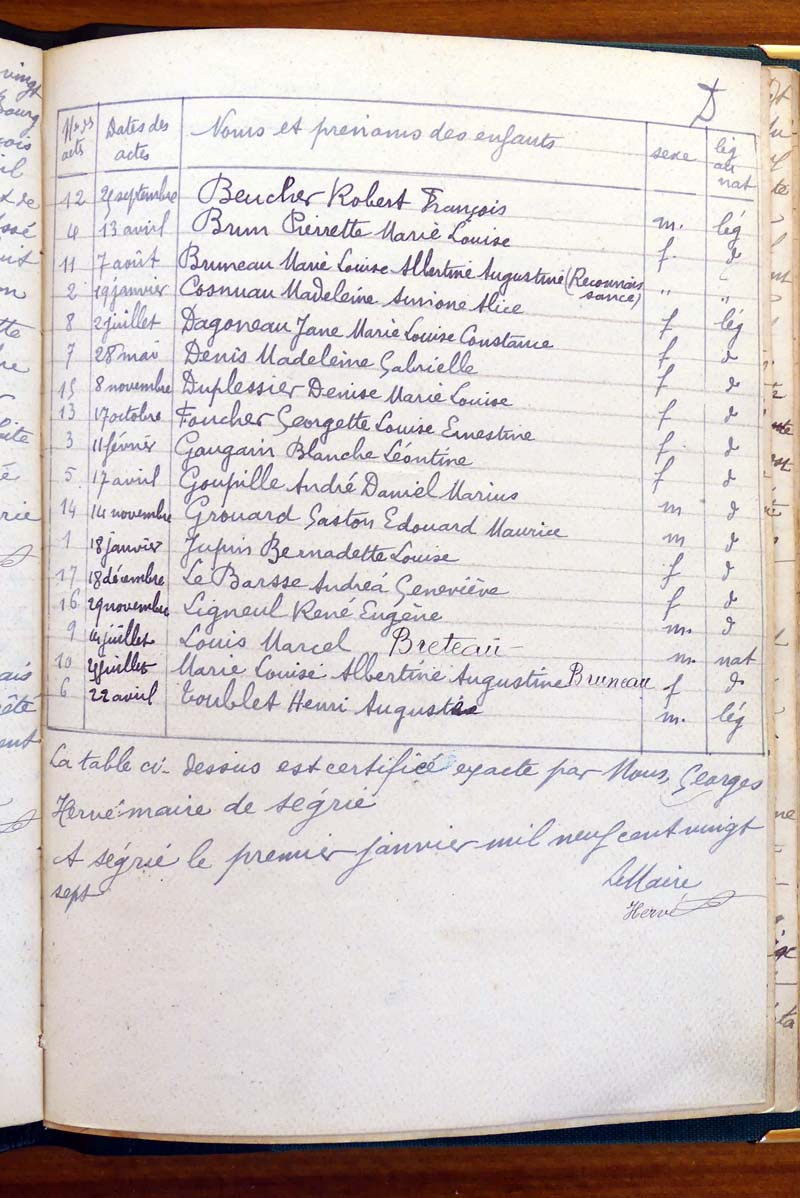 D
Nos des actes Dates des actes Noms et prénoms des enfants sexe lég ou nat
12 septembre Beucher Robert François m. lég
4 13 avril Brun Pierrette Marie Louise f. d
11 7 août Bruneau Marie Louise Albertine Augustine (Reconnaissance) " "
2 19 janvier Cosnuau Madeleine Simone Alice f lég
8 2 juillet Dagoneau Jane Marie Louise Constance f d
7 28 mai Denis Madeleine Gabrielle f d
15 8 novembre Duplessier Denise Marie Louise f d
13 17 octobre Foucher Georgette Louise Ernestine f. d
3 11 février Gaugain Blanche Léontine f d
5 17 avril Goupille André Daniel Marius m d
14 14 novembre Grouard Gaston Edouard Maurice m d
1 18 janvier Jupin Bernadette Louise f d
17 18 décembre Le Barsse Andreá Geneviève f d
16 29 novembre Ligneul René Eugène m. d
9 juillet Louis Marcel Breteau m. nat
10 juillet Marie Louise Albertine Augustine Bruneau f d
6 22 avril Toublet Henri Auguste m. lég
La table ci-dessus est certifiée exacte par Nous, Georges
Hervé maire de ségrie
A ségrié le premier janvier mil neuf cent vingt
sept
Le Maire
Hervé